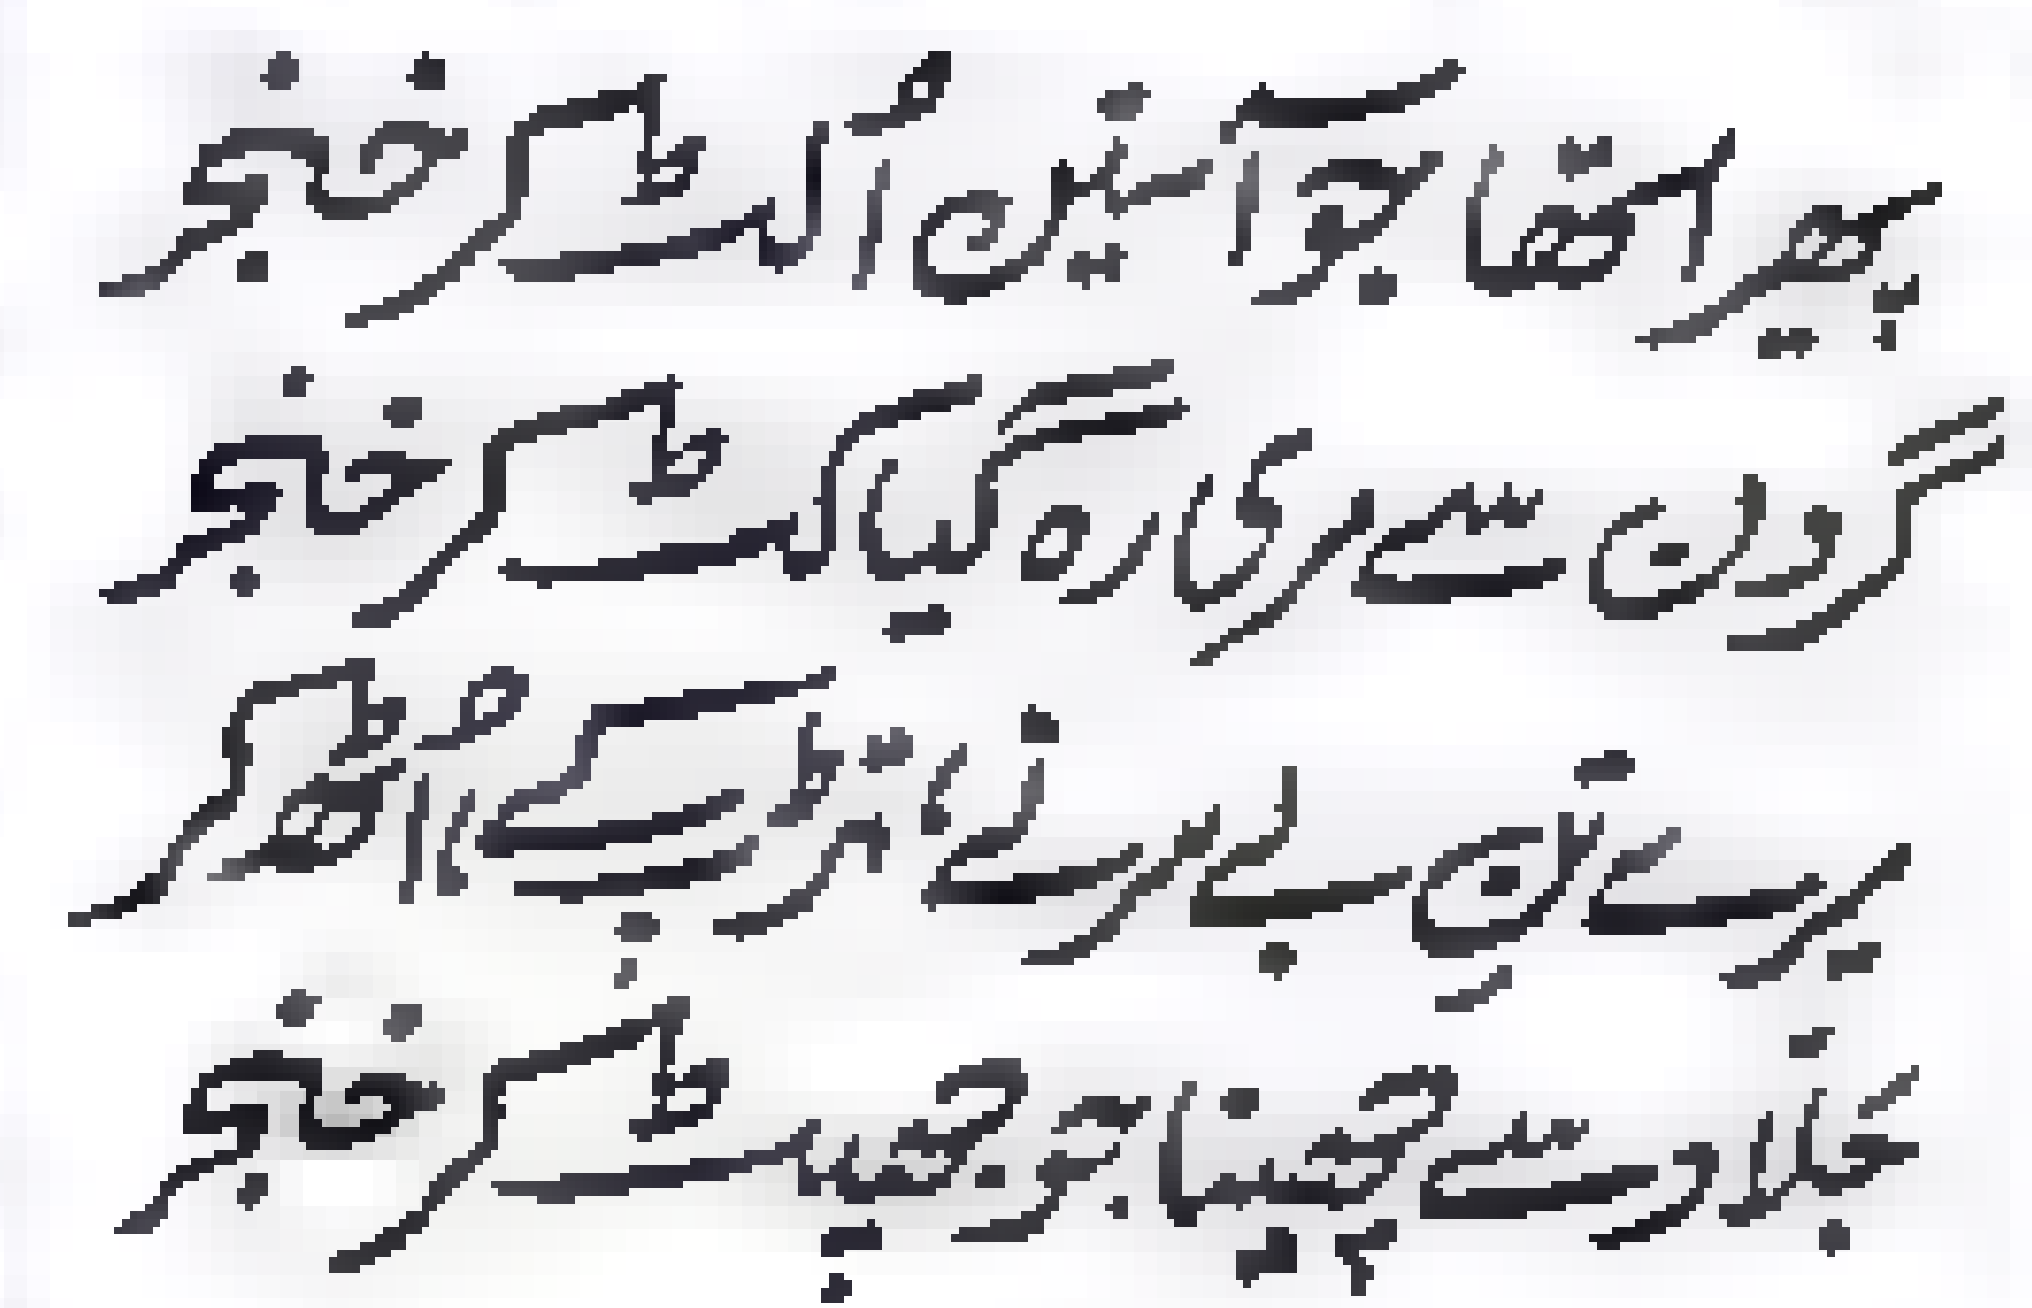 پھیر اٹھا جو آستین اُلٹ کر خنجر
گردن سے مری رہ گیا کٹ کر خنجر
میرے تنِ بے سر نے، تڑپ کے، اُٹھ کر
جلاد سے چھینا جو جھپٹ کر خنجر